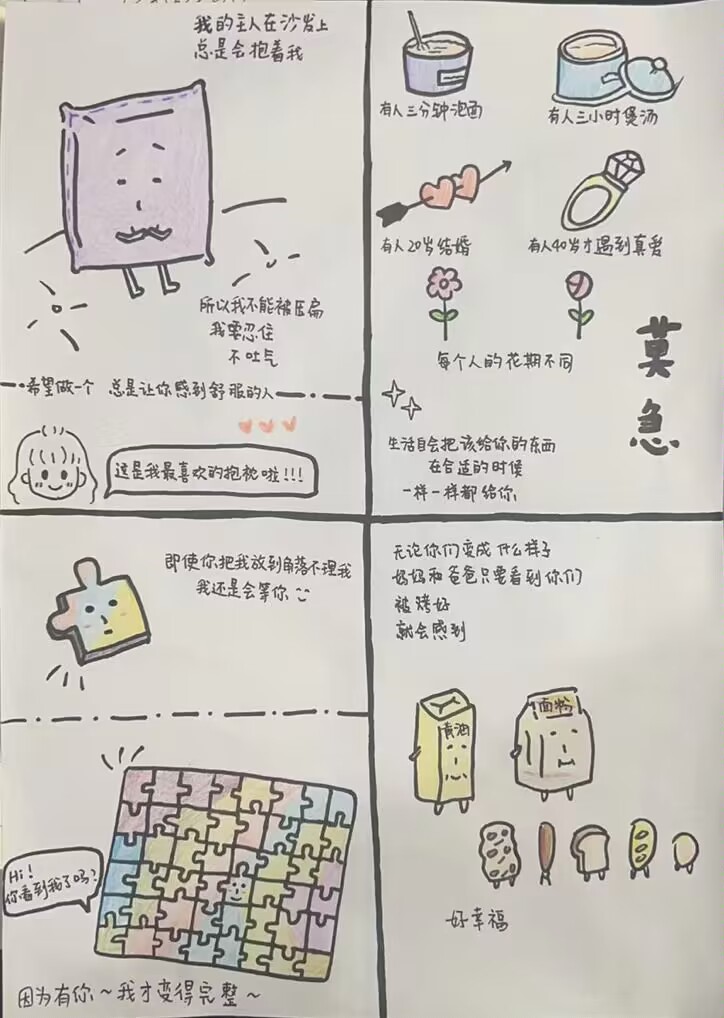 我的主人在沙发上
总是会抱着我
所以我不能被压扁
我要忍住
不吐气
希望做一个 总是让你感到舒服的人
这是我最喜欢的抱枕啦!!!
有人三分钟泡面
有人三小时煲汤
有人20岁结婚
有人40岁才遇到真爱
每个人的花期不同
莫急
生活自会把该给你的东西
在合适的时候
一样一样都给你
即使你把我放到角落不理我
我还是会等你
Hi!
你看到我了吗?
因为有你~我才变得完整~
无论你们变成什么样子
妈妈和爸爸只要看到你们
被烤好
就会感到
黄油
面粉
好幸福